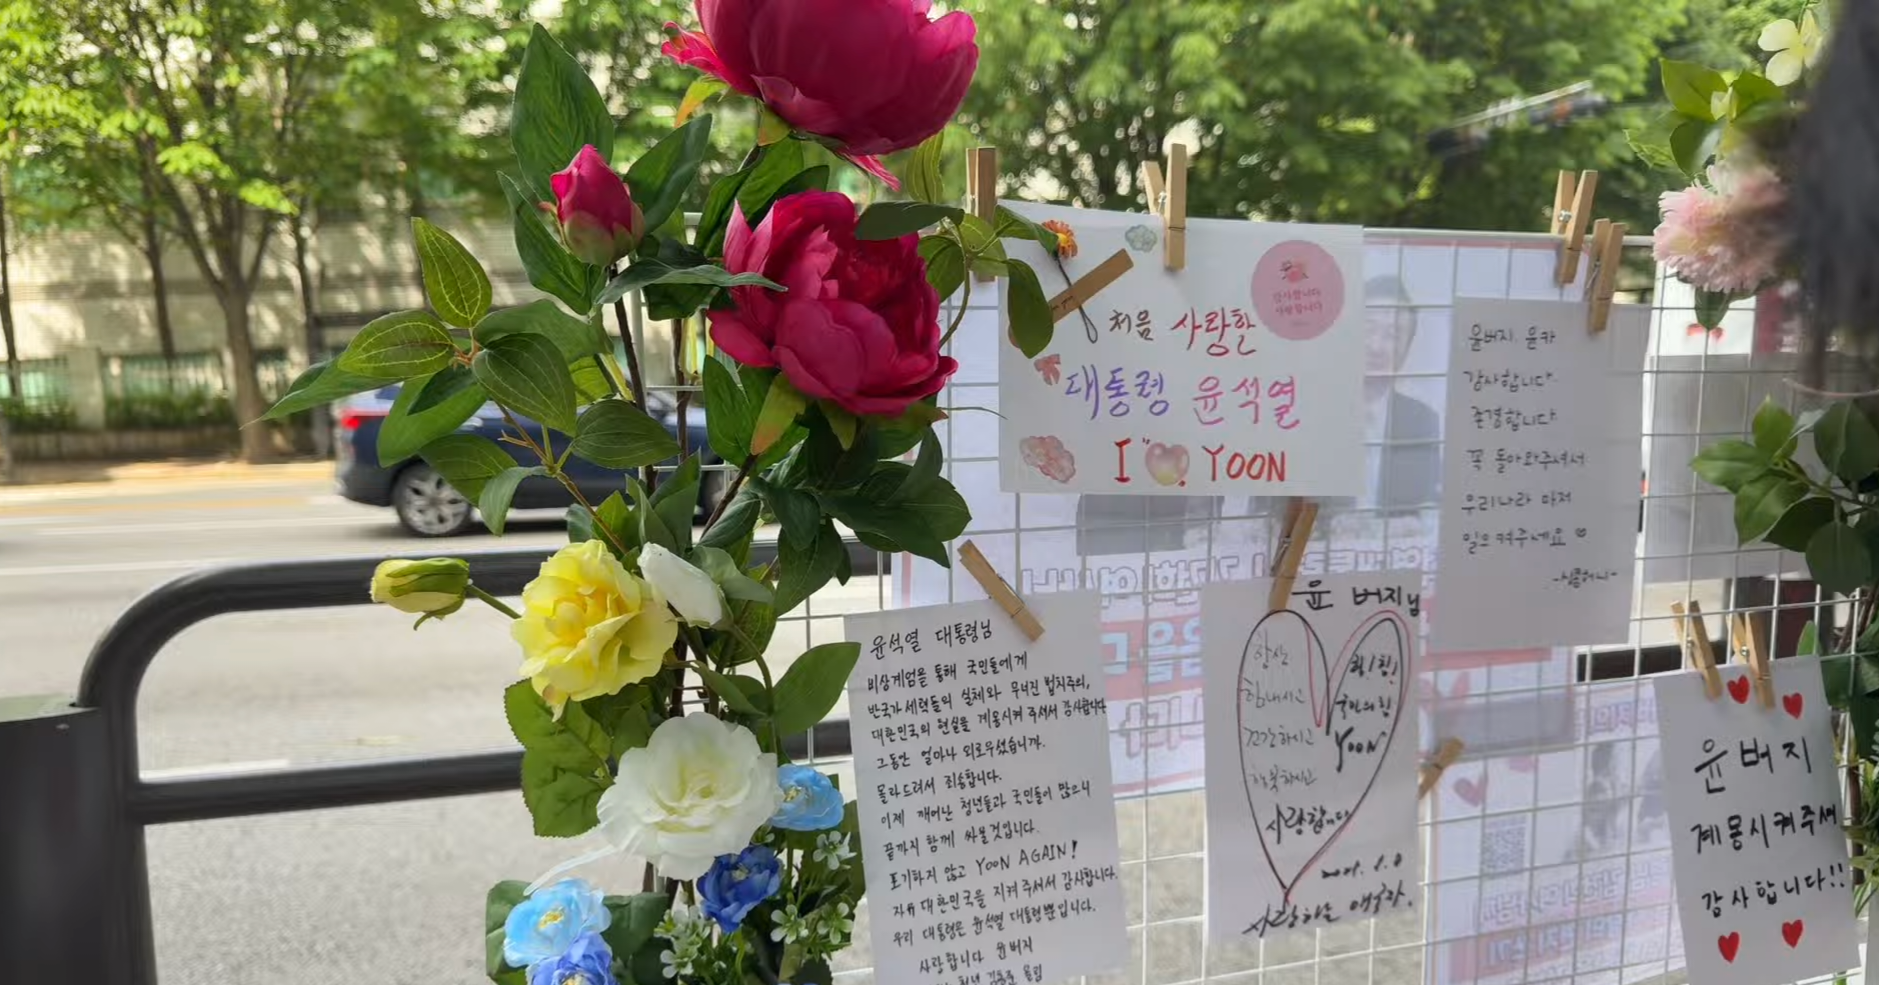 처음 사랑한
대통령 윤석열
I YOON
감사합니다
사랑합니다
윤버지. 윤카
감사합니다.
존경합니다
꼭 돌아와주셔서
우리나라 마저
일으켜주세요
윤석열 대통령님
비상계엄을 통해 국민들에게
반국가세력들의 실체와 무너진 법치주의,
대한민국의 현실을 계몽시켜 주셔서 감사합니다
그동안 얼마나 외로우셨습니까.
몰라드려서 죄송합니다.
이제 깨어난 청년들과 국민들이 많으니
끝까지 함께 싸울 것입니다.
포기하지 않고 YOON AGAIN!
자유대한민국을 지켜주셔서 감사합니다.
우리 대통령은 윤석열 대통령뿐입니다.
사랑합니다 윤버지
청년 올림
윤 버지님
항상
힘내시고
건강하시고
행복하시고
사랑합니다
힘! 힘!
국민의 힘
YOON
사랑하는 애국자.
윤버지
계몽시켜주셔
감사합니다!!